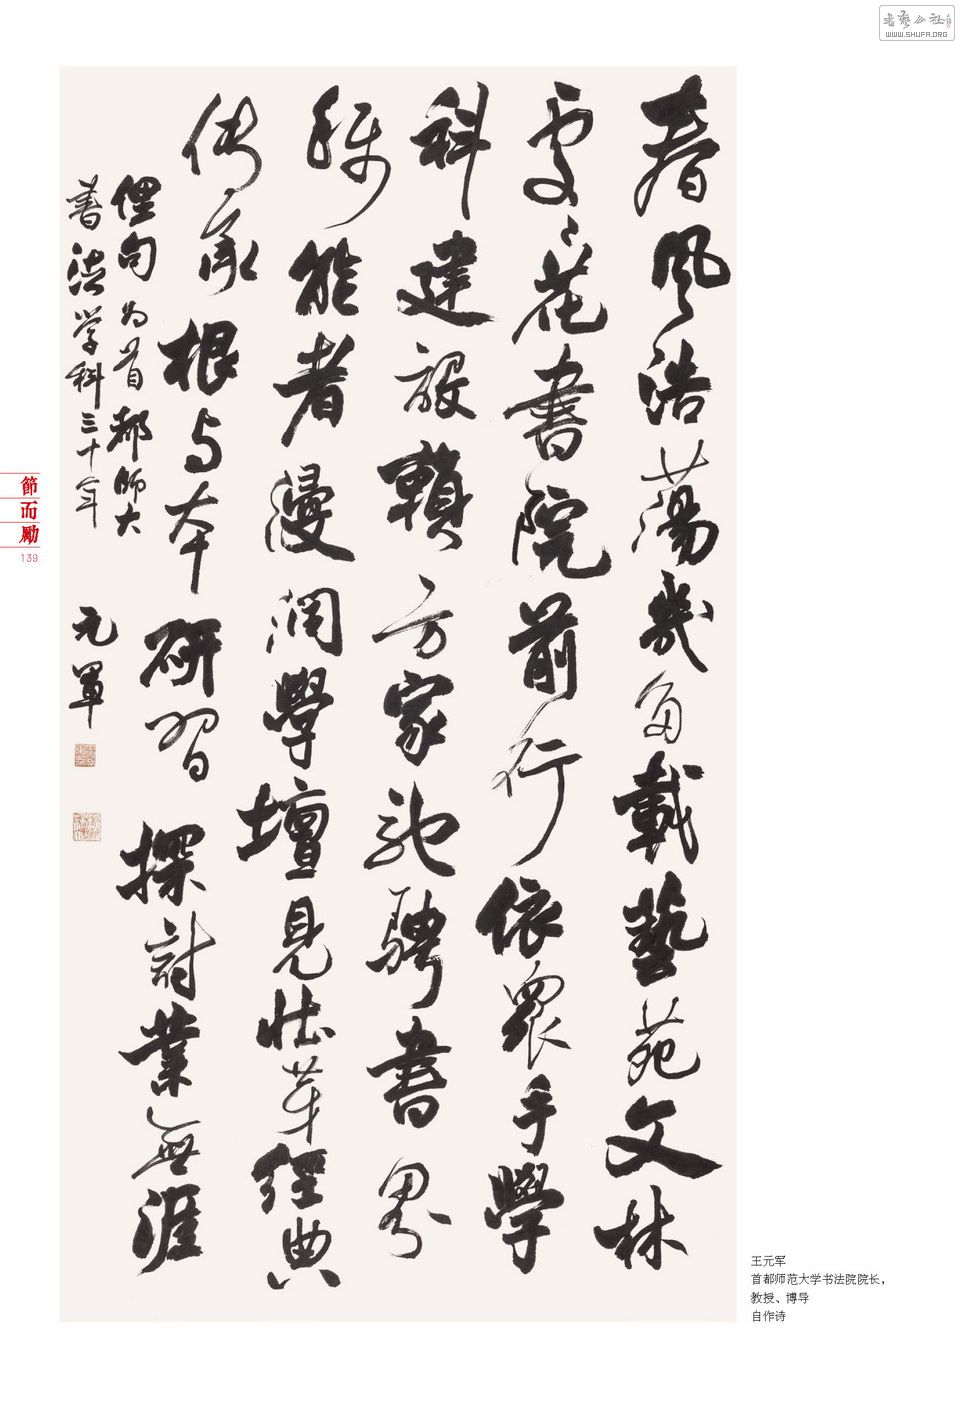 書藝公社
WWW.SHUFA.ORG
春風浩蕩幾多載藝苑文林
處々花書院前行依眾手學
科建設賴方家馳騁書界
稱能者漫潤學壇見壯芽經典
传承根与本研習探討業無涯
俚句为首都师大
書法学科三十年 元軍
節而勵
139
王元军
首都师范大学书法院院长,
教授、博导
自作诗